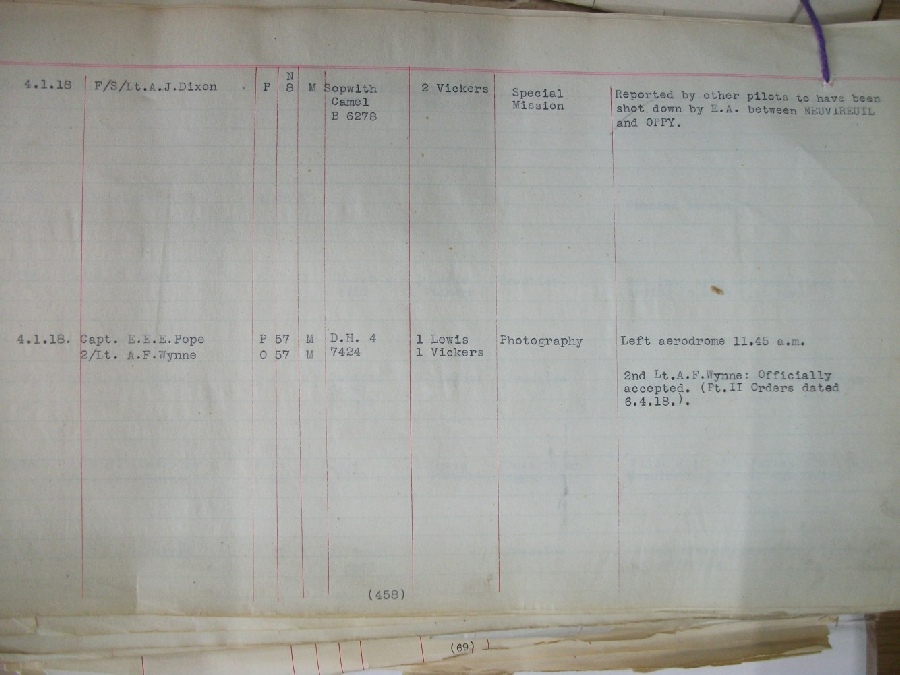 4.1.18 F/S/Lt.A.J.Dixon P N 8 M Sopwith 2 Vickers Special Reported by other pilots to have been
Camel Mission shot down by E.A. between NEUVIREUIL
B 6278 and OPPY.
4.1.18. Capt. E.E.E.Pope P 57 M D.H. 4 1 Lewis Photography Left aerodrome 11.45 a.m.
2/Lt. A.F.Wynne O 57 M 7424 1 Vickers
2nd Lt.A.F.Wynne: Officially
accepted. (Pt.II Orders dated
6.4.18.).
(458)
(69)